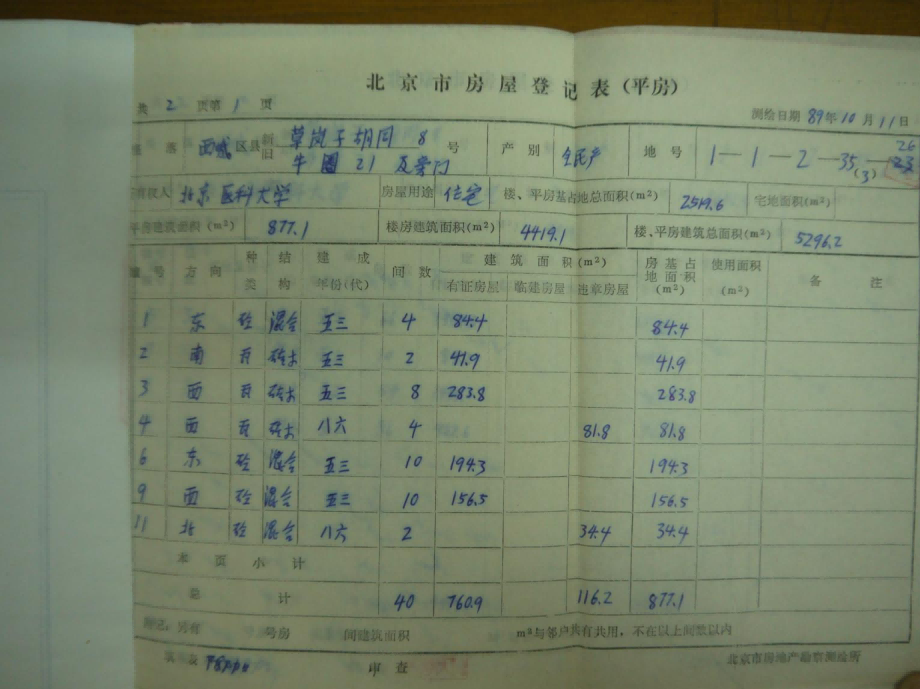 北京市房屋登记表（平房）
共 2 页第 1 页
测绘日期 89年10月11日
落 西城 区县 新旧 草岚子胡同 8 号 牛圈 21 及旁门 产别 全民产 地号 1—1—2—35(3)— 26
有权人 北京医科大学 房屋用途 住宅 楼、平房基占地总面积(m²) 2519.6 宅地面积(m²)
平房建筑面积(m²) 877.1 楼房建筑面积(m²) 4419.1 楼、平房建筑总面积(m²) 5296.2
号 方向 种类 结构 建成年份(代) 间数 建筑面积(m²) 有证房屋 临建房屋 违章房屋 房基占地面积(m²) 使用面积(m²) 备注
1 东 砼 混合 五三 4 84.4 84.4
2 南 瓦 砖木 五三 2 41.9 41.9
3 西 瓦 砖木 五三 8 283.8 283.8
4 西 瓦 砖木 八六 4 81.8 81.8
6 东 砼 混合 五三 10 194.3 194.3
9 西 砼 混合 五三 10 156.5 156.5
11 北 砼 混合 八六 2 34.4 34.4
本页小计
总计 40 760.9 116.2 877.1
附记：另有 号房 间建筑面积 m²与邻户共有共用，不在以上间数以内
审查 北京市房地产勘察测绘所